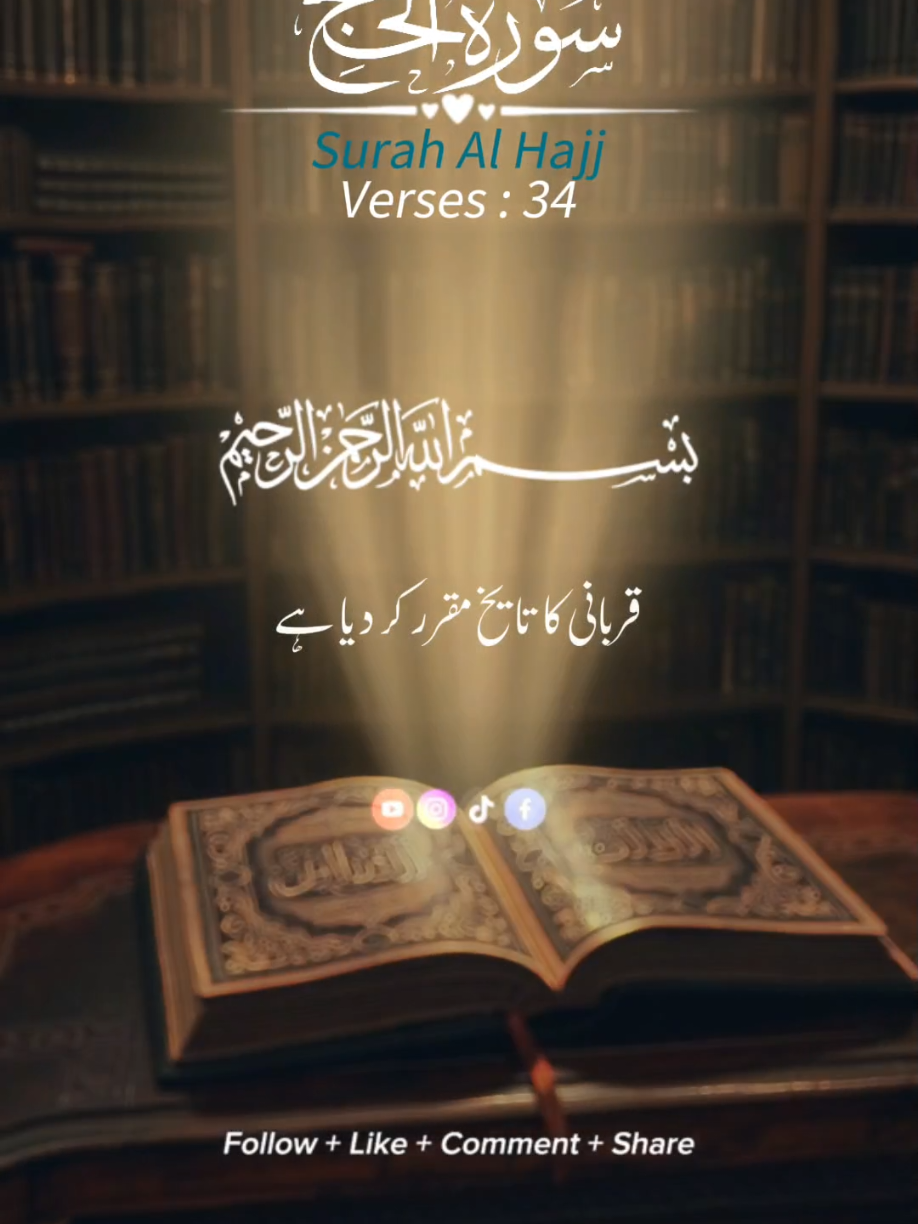 سورة الحج
Surah Al Hajj
Verses : 34
بسم الله الرحمن الرحيم
قربانی کا تایخ مقرر کر دیا ہے
Follow + Like + Comment + Share